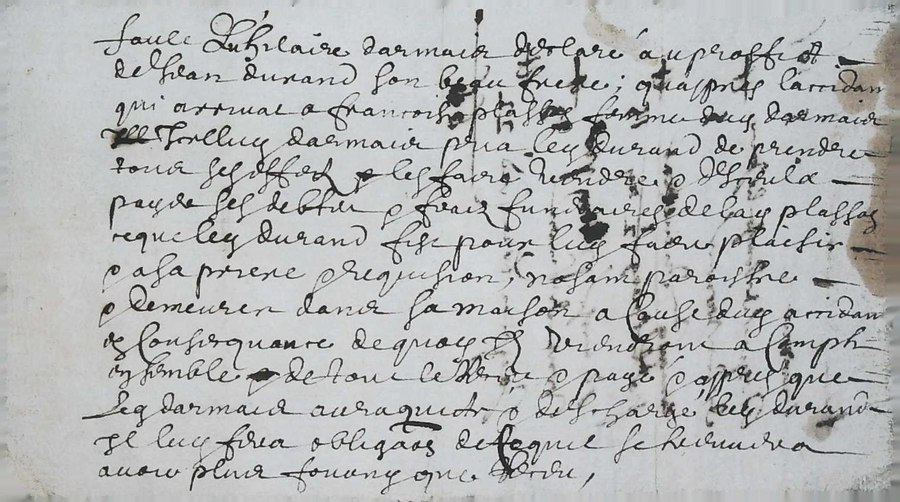 hilaire darmaie declare au proffit
de Jean durand son beau frere; quappres laccidan
qui arrivat a francoise plassay femme dud darmaie
Icelluy darmaie pria led durand de prendre
tous ses effetz & les faire vendre & dIceulx
payer ses debtes & fraiz funeraires de lad plassay
ce que led durand fist pour luy faire plaisir
& a sa priere & requision, nosant paroistre
& demeurer dans sa maison a Cause dud accidan
en Consequance de quoy Ilz viendront a Compte
ensemble de tout le & paye & appres que
Led darmaie aura quicte & descharge led durand
Il luy fera obligaon de ce quil se trouvera
avoir plus fourny que Receu,